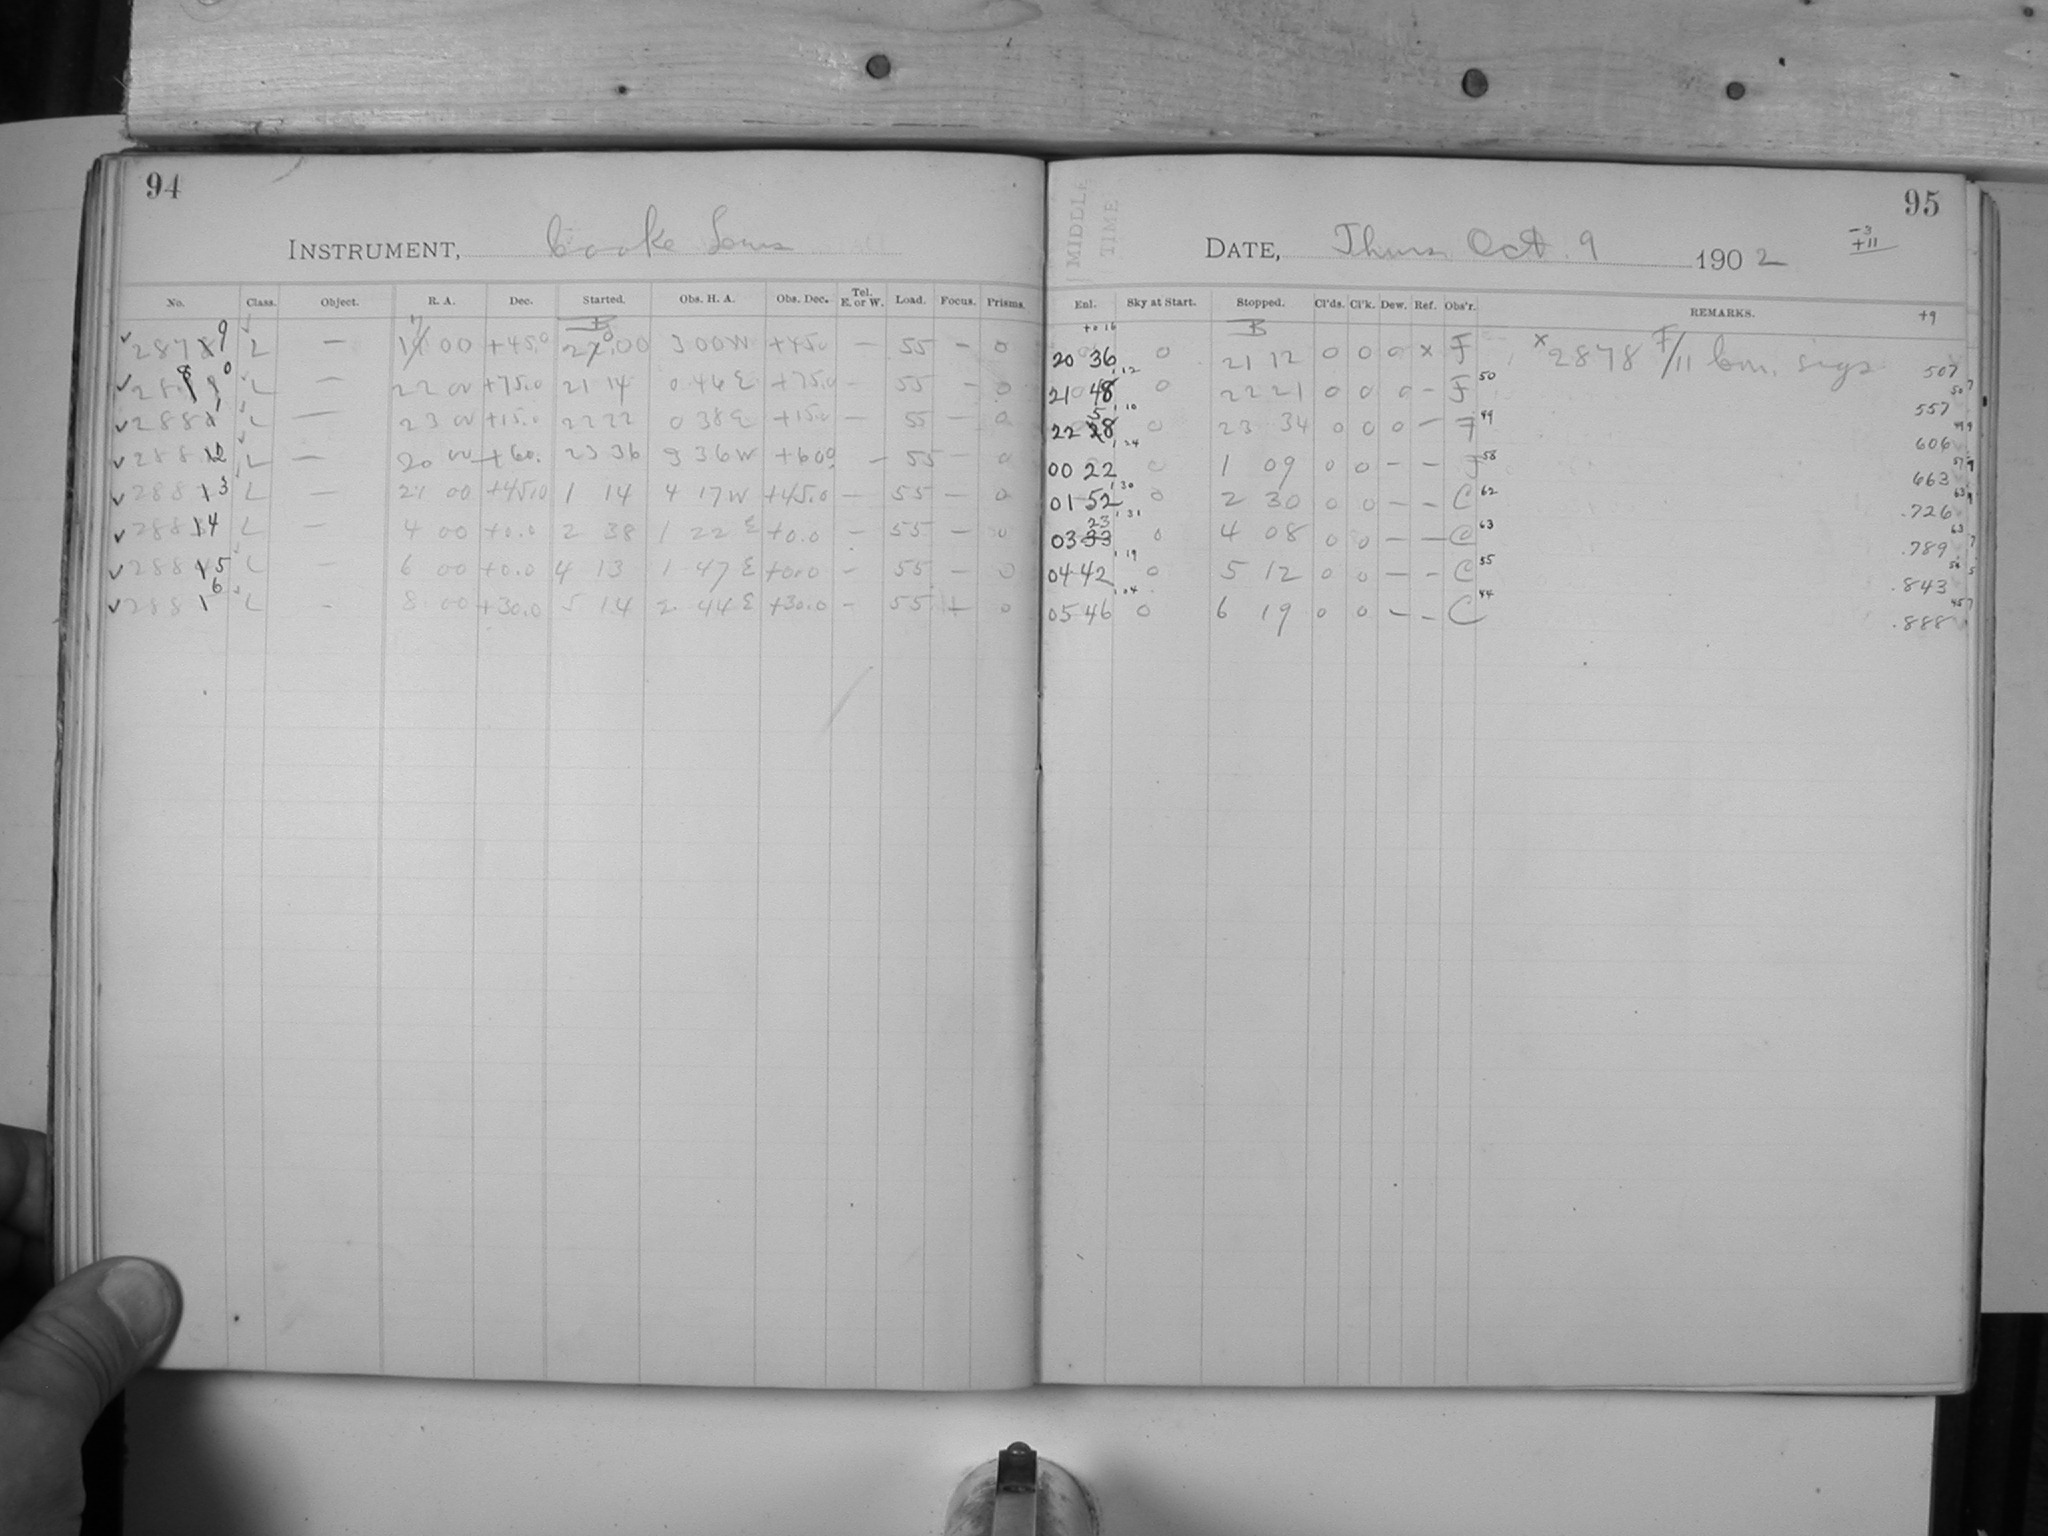 94
INSTRUMENT, Cooke Lens
No. Class. Object. R. A. Dec. Started. Obs. H. A. Obs. Dec. Tel. E. or W. Load. Focus. Prisms.
28789 L — 17 00 +45.0 20 00 3 00 W +45.0 — 55 — 0
2880 L — 22 00 +75.0 21 14 0 46 E +75.0 — 55 — 0
2881 L — 23 00 +15.0 22 22 0 38 E +15.0 — 55 — 0
2882 L — 20 00 +60. 23 36 3 36 W +60.0 — 55 — 0
2883 L — 21 00 +45.0 1 14 4 17 W +45.0 — 55 — 0
2884 L — 4 00 +0.0 2 38 1 22 E +0.0 — 55 — 0
2885 L — 6 00 +0.0 4 13 1 47 E +0.0 — 55 — 0
2886 L - 8 00 +30.0 5 14 2 44 E +30.0 — 55 + 0
95
MIDDLE TIME
DATE, Thurs Oct. 9 1902
-3
+11
Enl. Sky at Start. Stopped. Cl'ds. Cl'k. Dew. Ref. Obs'r. REMARKS. +9
20 36 0 21 12 0 0 0 x F x 2878 F/11 bm. sngs 507
21 48 0 22 21 0 0 0 - F 50 557
22 58 0 23 34 0 0 0 — F 49 606
00 22 0 1 09 0 0 — — F 58 663
01 52 0 2 30 0 0 — — C 62 .726
03 23 0 4 08 0 0 — — C 63 .789
04 42 0 5 12 0 0 — — C 55 .843
05 46 0 6 19 0 0 — — C 44 .888